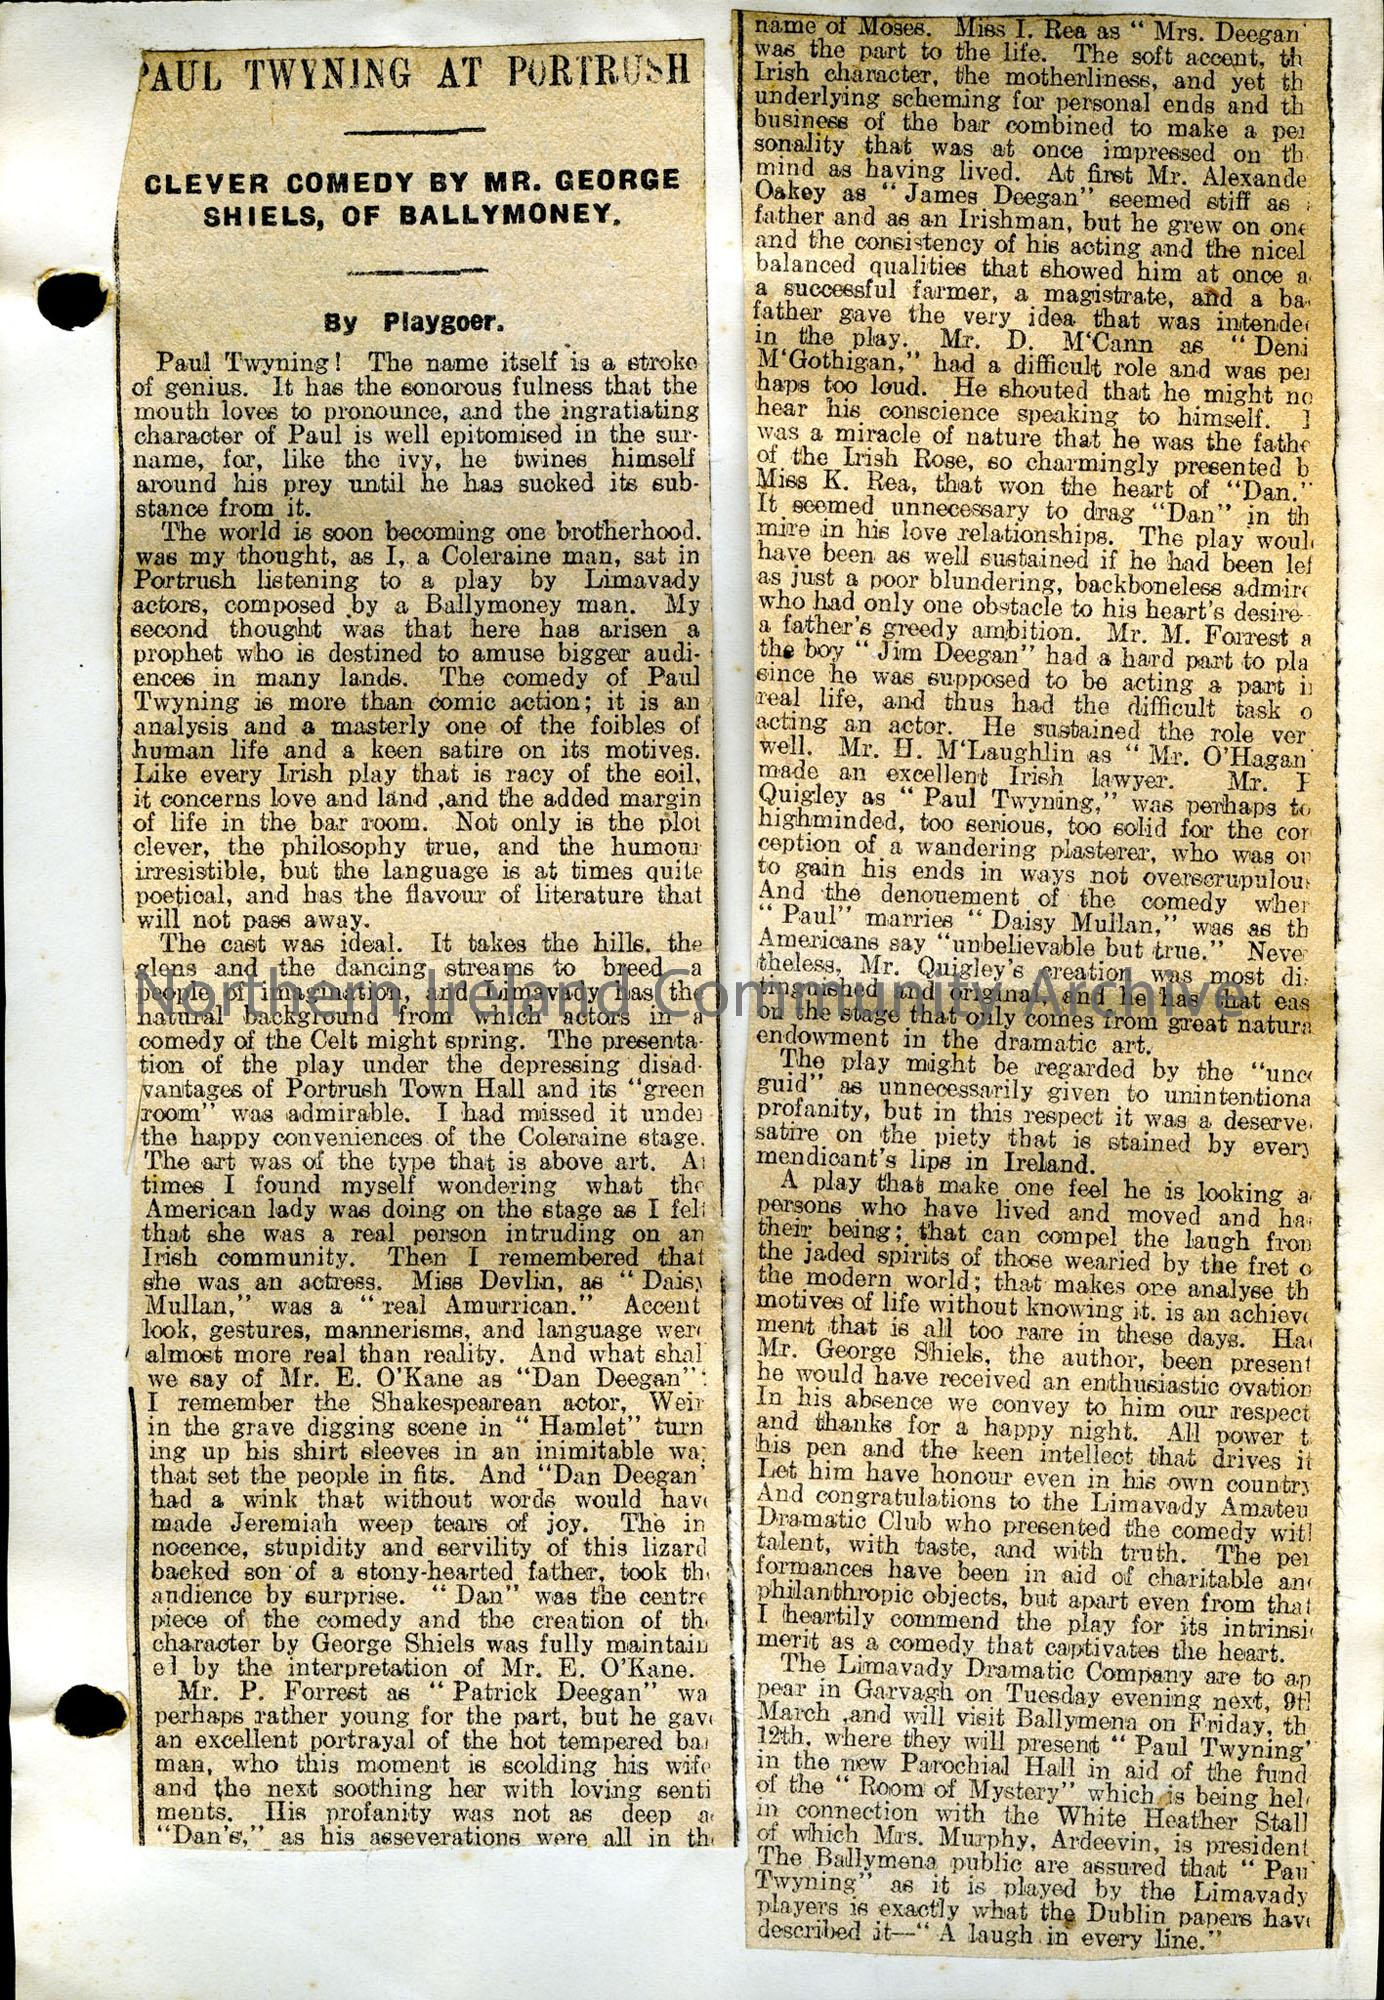 PAUL TWYNING AT PORTRUSH
CLEVER COMEDY BY MR. GEORGE
SHIELS, OF BALLYMONEY.
By Playgoer.
Paul Twyning! The name itself is a stroke
of genius. It has the sonorous fulness that the
mouth loves to pronounce, and the ingratiating
character of Paul is well epitomised in the sur-
name, for, like the ivy, he twines himself
around his prey until he has sucked its sub-
stance from it.
The world is soon becoming one brotherhood.
was my thought, as I, a Coleraine man, sat in
Portrush listening to a play by Limavady
actors, composed by a Ballymoney man. My
second thought was that here has arisen a
prophet who is destined to amuse bigger audi-
ences in many lands. The comedy of Paul
Twyning is more than comic action; it is an
analysis and a masterly one of the foibles of
human life and a keen satire on its motives.
Like every Irish play that is racy of the soil,
it concerns love and land ,and the added margin
of life in the bar room. Not only is the plot
clever, the philosophy true, and the humour
irresistible, but the language is at times quite
poetical, and has the flavour of literature that
will not pass away.
The cast was ideal. It takes the hills, the
glens and the dancing streams to breed a
people of imagination, and Limavady has the
natural background from which actors in a
comedy of the Celt might spring. The presenta-
tion of the play under the depressing disad-
vantages of Portrush Town Hall and its "green
room" was admirable. I had missed it under
the happy conveniences of the Coleraine stage.
The art was of the type that is above art. At
times I found myself wondering what the
American lady was doing on the stage as I felt
that she was a real person intruding on an
Irish community. Then I remembered that
she was an actress. Miss Devlin, as "Daisy
Mullan," was a "real Amurrican." Accent
look, gestures, mannerisms, and language were
almost more real than reality. And what shal
we say of Mr. E. O'Kane as "Dan Deegan":
I remember the Shakespearean actor, Weir
in the grave digging scene in "Hamlet" turn
ing up his shirt sleeves in an inimitable way
that set the people in fits. And "Dan Deegan
had a wink that without words would have
made Jeremiah weep tears of joy. The in
nocence, stupidity and servility of this lizard
backed son of a stony-hearted father, took the
audience by surprise. "Dan" was the centre
piece of the comedy and the creation of the
character by George Shiels was fully maintain
ed by the interpretation of Mr. E. O'Kane.
Mr. P. Forrest as "Patrick Deegan" wa
perhaps rather young for the part, but he gave
an excellent portrayal of the hot tempered bar
man, who this moment is scolding his wife
and the next soothing her with loving senti
ments. His profanity was not as deep a
"Dan's," as his asseverations were all in th
name of Moses. Miss I. Rea as "Mrs. Deegan"
was the part to the life. The soft accent, th
Irish character, the motherliness, and yet th
underlying scheming for personal ends and th
business of the bar combined to make a per
sonality that was at once impressed on th
mind as having lived. At first Mr. Alexande
Oakey as "James Deegan" seemed stiff as a
father and as an Irishman, but he grew on one
and the consistency of his acting and the nicel
balanced qualities that showed him at once a
a successful farmer, a magistrate, and a ba
father gave the very idea that was intende
in the play. Mr. D. M'Cann as "Deni
M'Gothigan," had a difficult role and was per
haps too loud. He shouted that he might no
hear his conscience speaking to himself. I
was a miracle of nature that he was the fathe
of the Irish Rose, so charmingly presented b
Miss K. Rea, that won the heart of "Dan."
It seemed unnecessary to drag "Dan" in th
mire in his love relationships. The play woul
have been as well sustained if he had been lef
as just a poor blundering, backboneless admire
who had only one obstacle to his heart's desire-
a father's greedy ambition. Mr. M. Forrest a
the boy "Jim Deegan" had a hard part to pla
since he was supposed to be acting a part in
real life, and thus had the difficult task o
acting an actor. He sustained the role ver
well. Mr. H. M'Laughlin as "Mr. O'Hagan"
made an excellent Irish lawyer. Mr. F
Quigley as "Paul Twyning," was perhaps to
highminded, too serious, too solid for the con
ception of a wandering plasterer, who was ou
to gain his ends in ways not overscrupulous
And the denouement of the comedy when
"Paul" marries "Daisy Mullan," was as th
Americans say "unbelievable but true." Neve
theless, Mr. Quigley's creation was most dis
tinguished and original and he has that eas
on the stage that only comes from great natura
endowment in the dramatic art.
The play might be regarded by the "unco
guid" as unnecessarily given to unintentiona
profanity, but in this respect it was a deserve
satire on the piety that is stained by every
mendicant's lips in Ireland.
A play that make one feel he is looking a
persons who have lived and moved and ha
their being; that can compel the laugh from
the jaded spirits of those wearied by the fret o
the modern world; that makes one analyse th
motives of life without knowing it, is an achieve
ment that is all too rare in these days. Ha
Mr. George Shiels, the author, been present
he would have received an enthusiastic ovation
In his absence we convey to him our respect
and thanks for a happy night. All power t
his pen and the keen intellect that drives it
Let him have honour even in his own country
And congratulations to the Limavady Amateu
Dramatic Club who presented the comedy with
talent, with taste, and with truth. The per
formances have been in aid of charitable an
philanthropic objects, but apart even from that
I heartily commend the play for its intrinsi
merit as a comedy that captivates the heart.
The Limavady Dramatic Company are to ap
pear in Garvagh on Tuesday evening next, 9th
March ,and will visit Ballymena on Friday, th
12th, where they will present "Paul Twyning"
in the new Parochial Hall in aid of the fund
of the "Room of Mystery" which is being hel
in connection with the White Heather Stall
of which Mrs. Murphy, Ardeevin, is president
The Ballymena public are assured that "Pau
Twyning" as it is played by the Limavady
players is exactly what the Dublin papers have
described it—"A laugh in every line."
Northern Ireland Community Archive